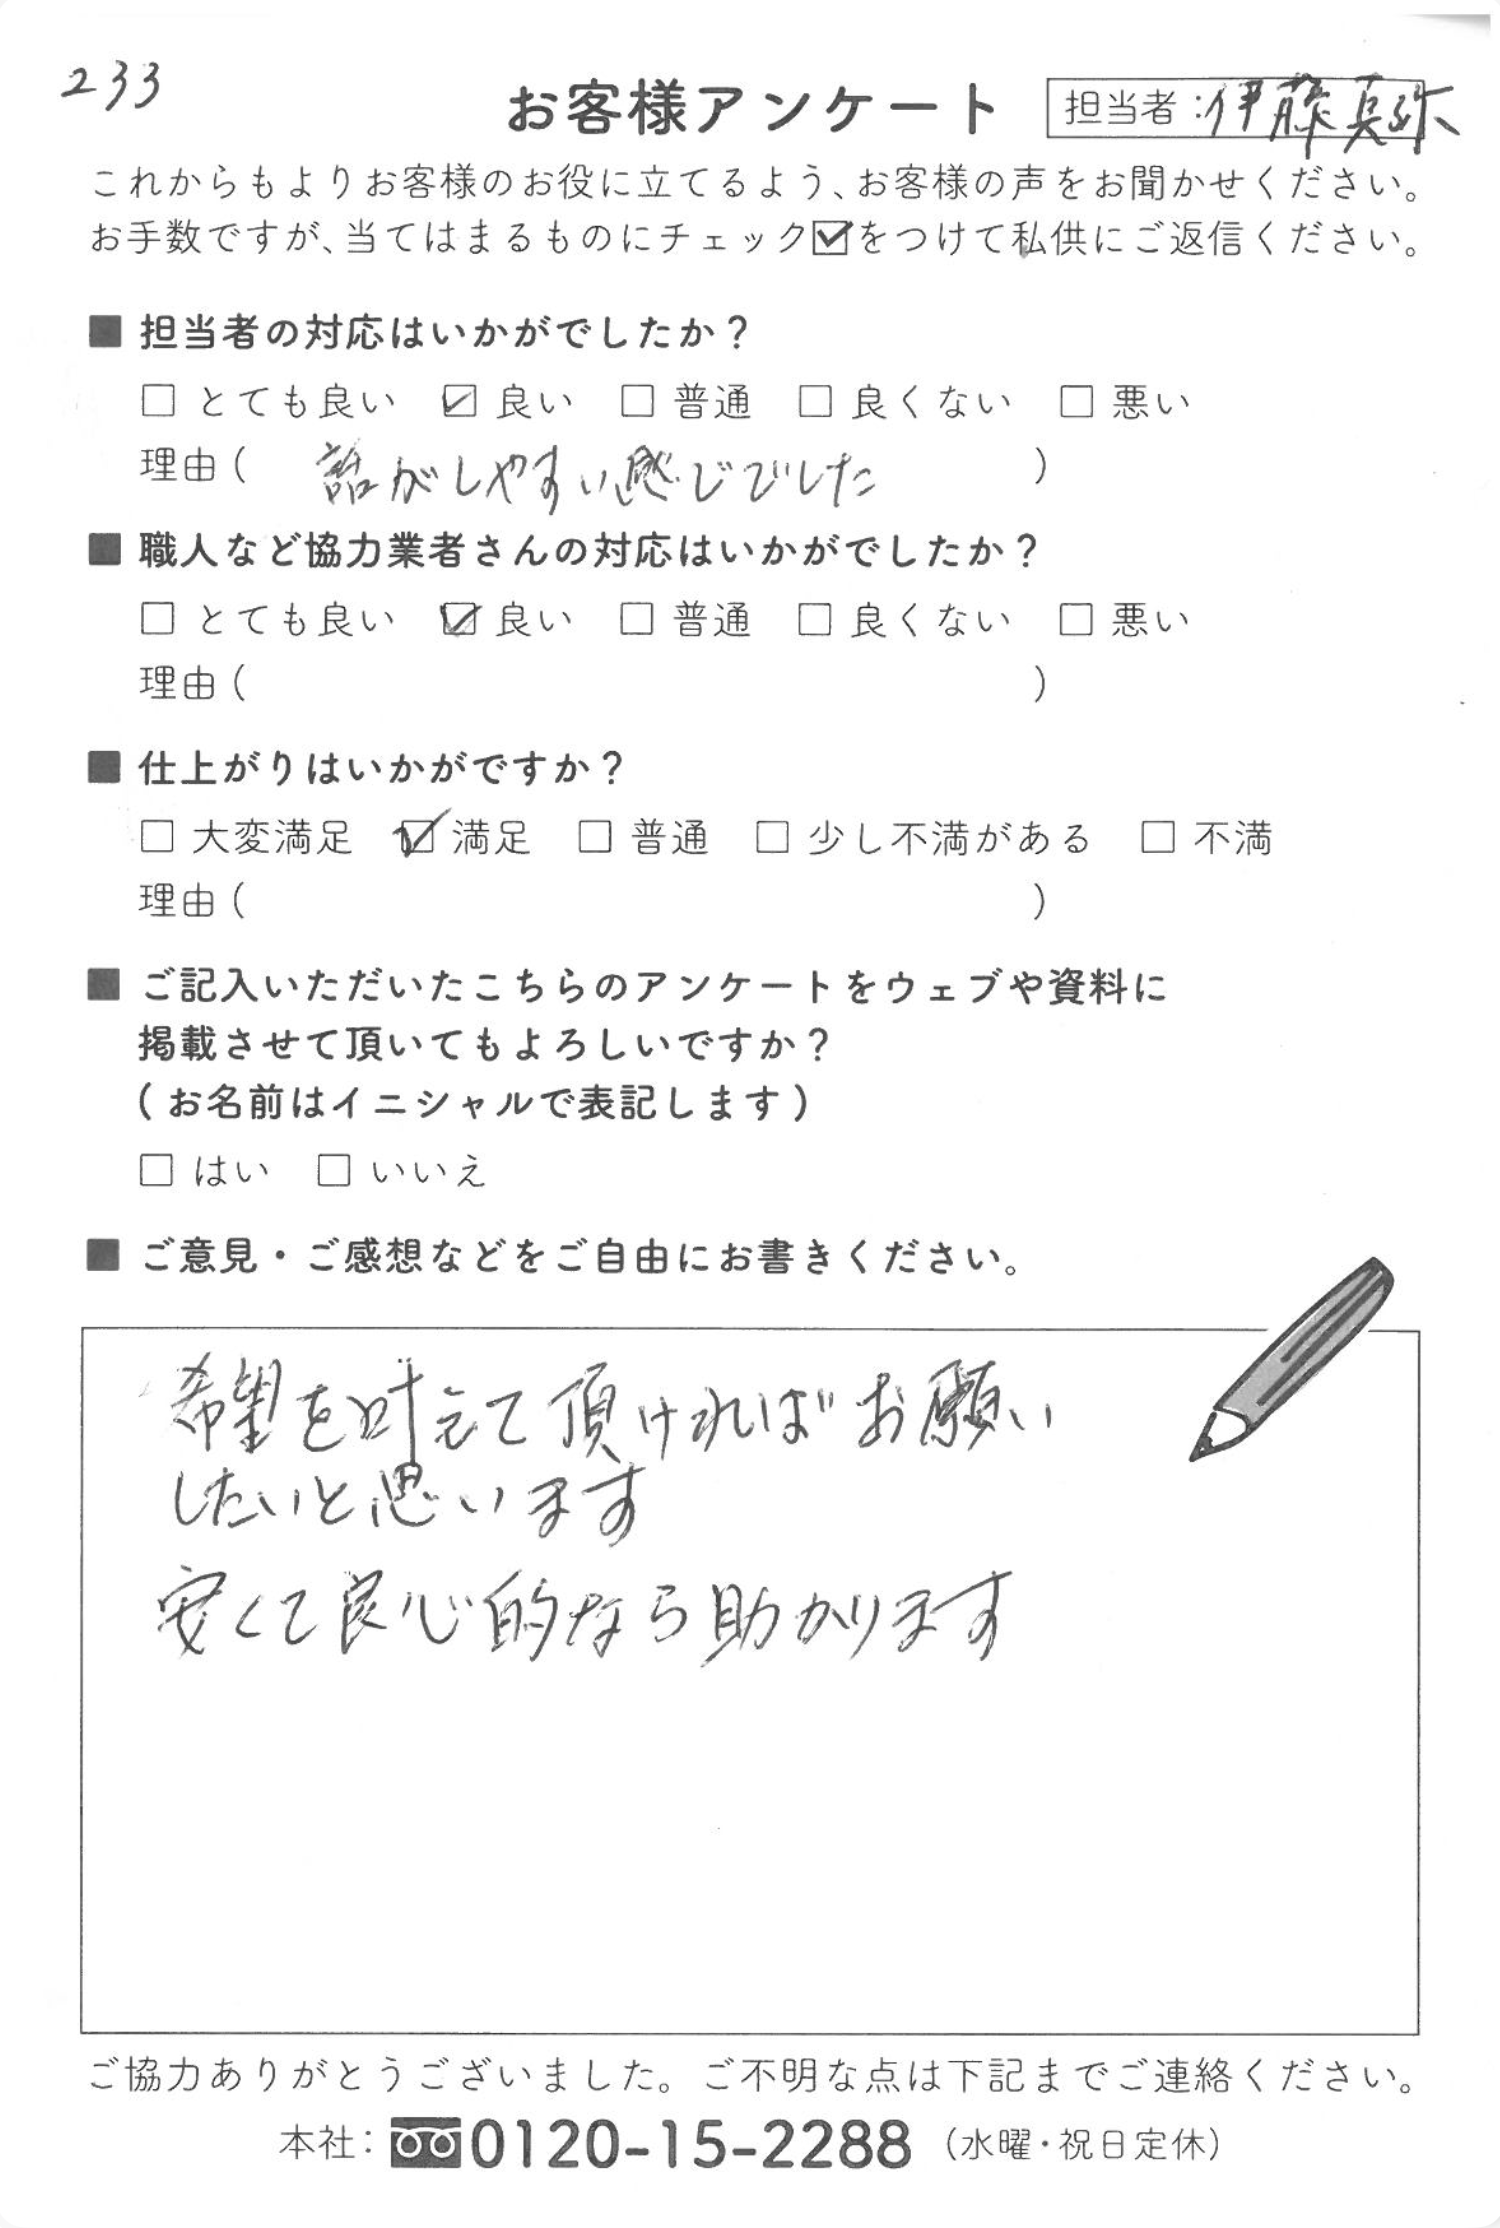 233
お客様アンケート
担当者:伊藤真弥
これからもよりお客様のお役に立てるよう、お客様の声をお聞かせください。
お手数ですが、当てはまるものにチェック☑をつけて私供にご返信ください。
■ 担当者の対応はいかがでしたか？
□ とても良い ☑ 良い □ 普通 □ 良くない □ 悪い
理由( 話がしやすい感じでした )
■ 職人など協力業者さんの対応はいかがでしたか？
□ とても良い ☑ 良い □ 普通 □ 良くない □ 悪い
理由( )
■ 仕上がりはいかがですか？
□ 大変満足 ☑ 満足 □ 普通 □ 少し不満がある □ 不満
理由( )
■ ご記入いただいたこちらのアンケートをウェブや資料に
掲載させて頂いてもよろしいですか？
(お名前はイニシャルで表記します)
□ はい □ いいえ
■ ご意見・ご感想などをご自由にお書きください。
希望を叶えて頂ければお願い
したいと思います
安くて良心的なら助かります
ご協力ありがとうございました。ご不明な点は下記までご連絡ください。
本社: 0120-15-2288 (水曜・祝日定休)